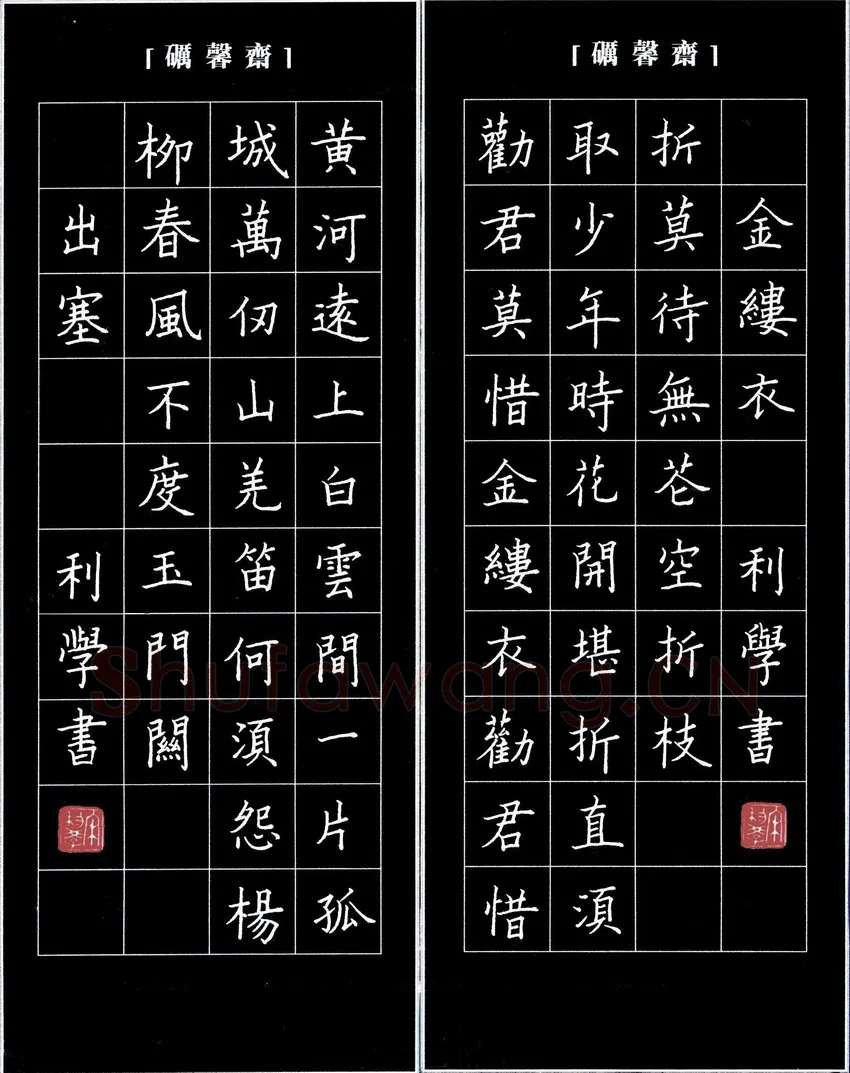 「礪馨齋」
黄河遠上白雲間一片孤
城萬仞山羌笛何須怨楊
柳春風不度玉門關
出塞 利学書
「礪馨齋」
勸君莫惜金縷衣勸君惜
取少年時花開堪折直須
折莫待無花空折枝
金縷衣 利學書
Shufawang.CN